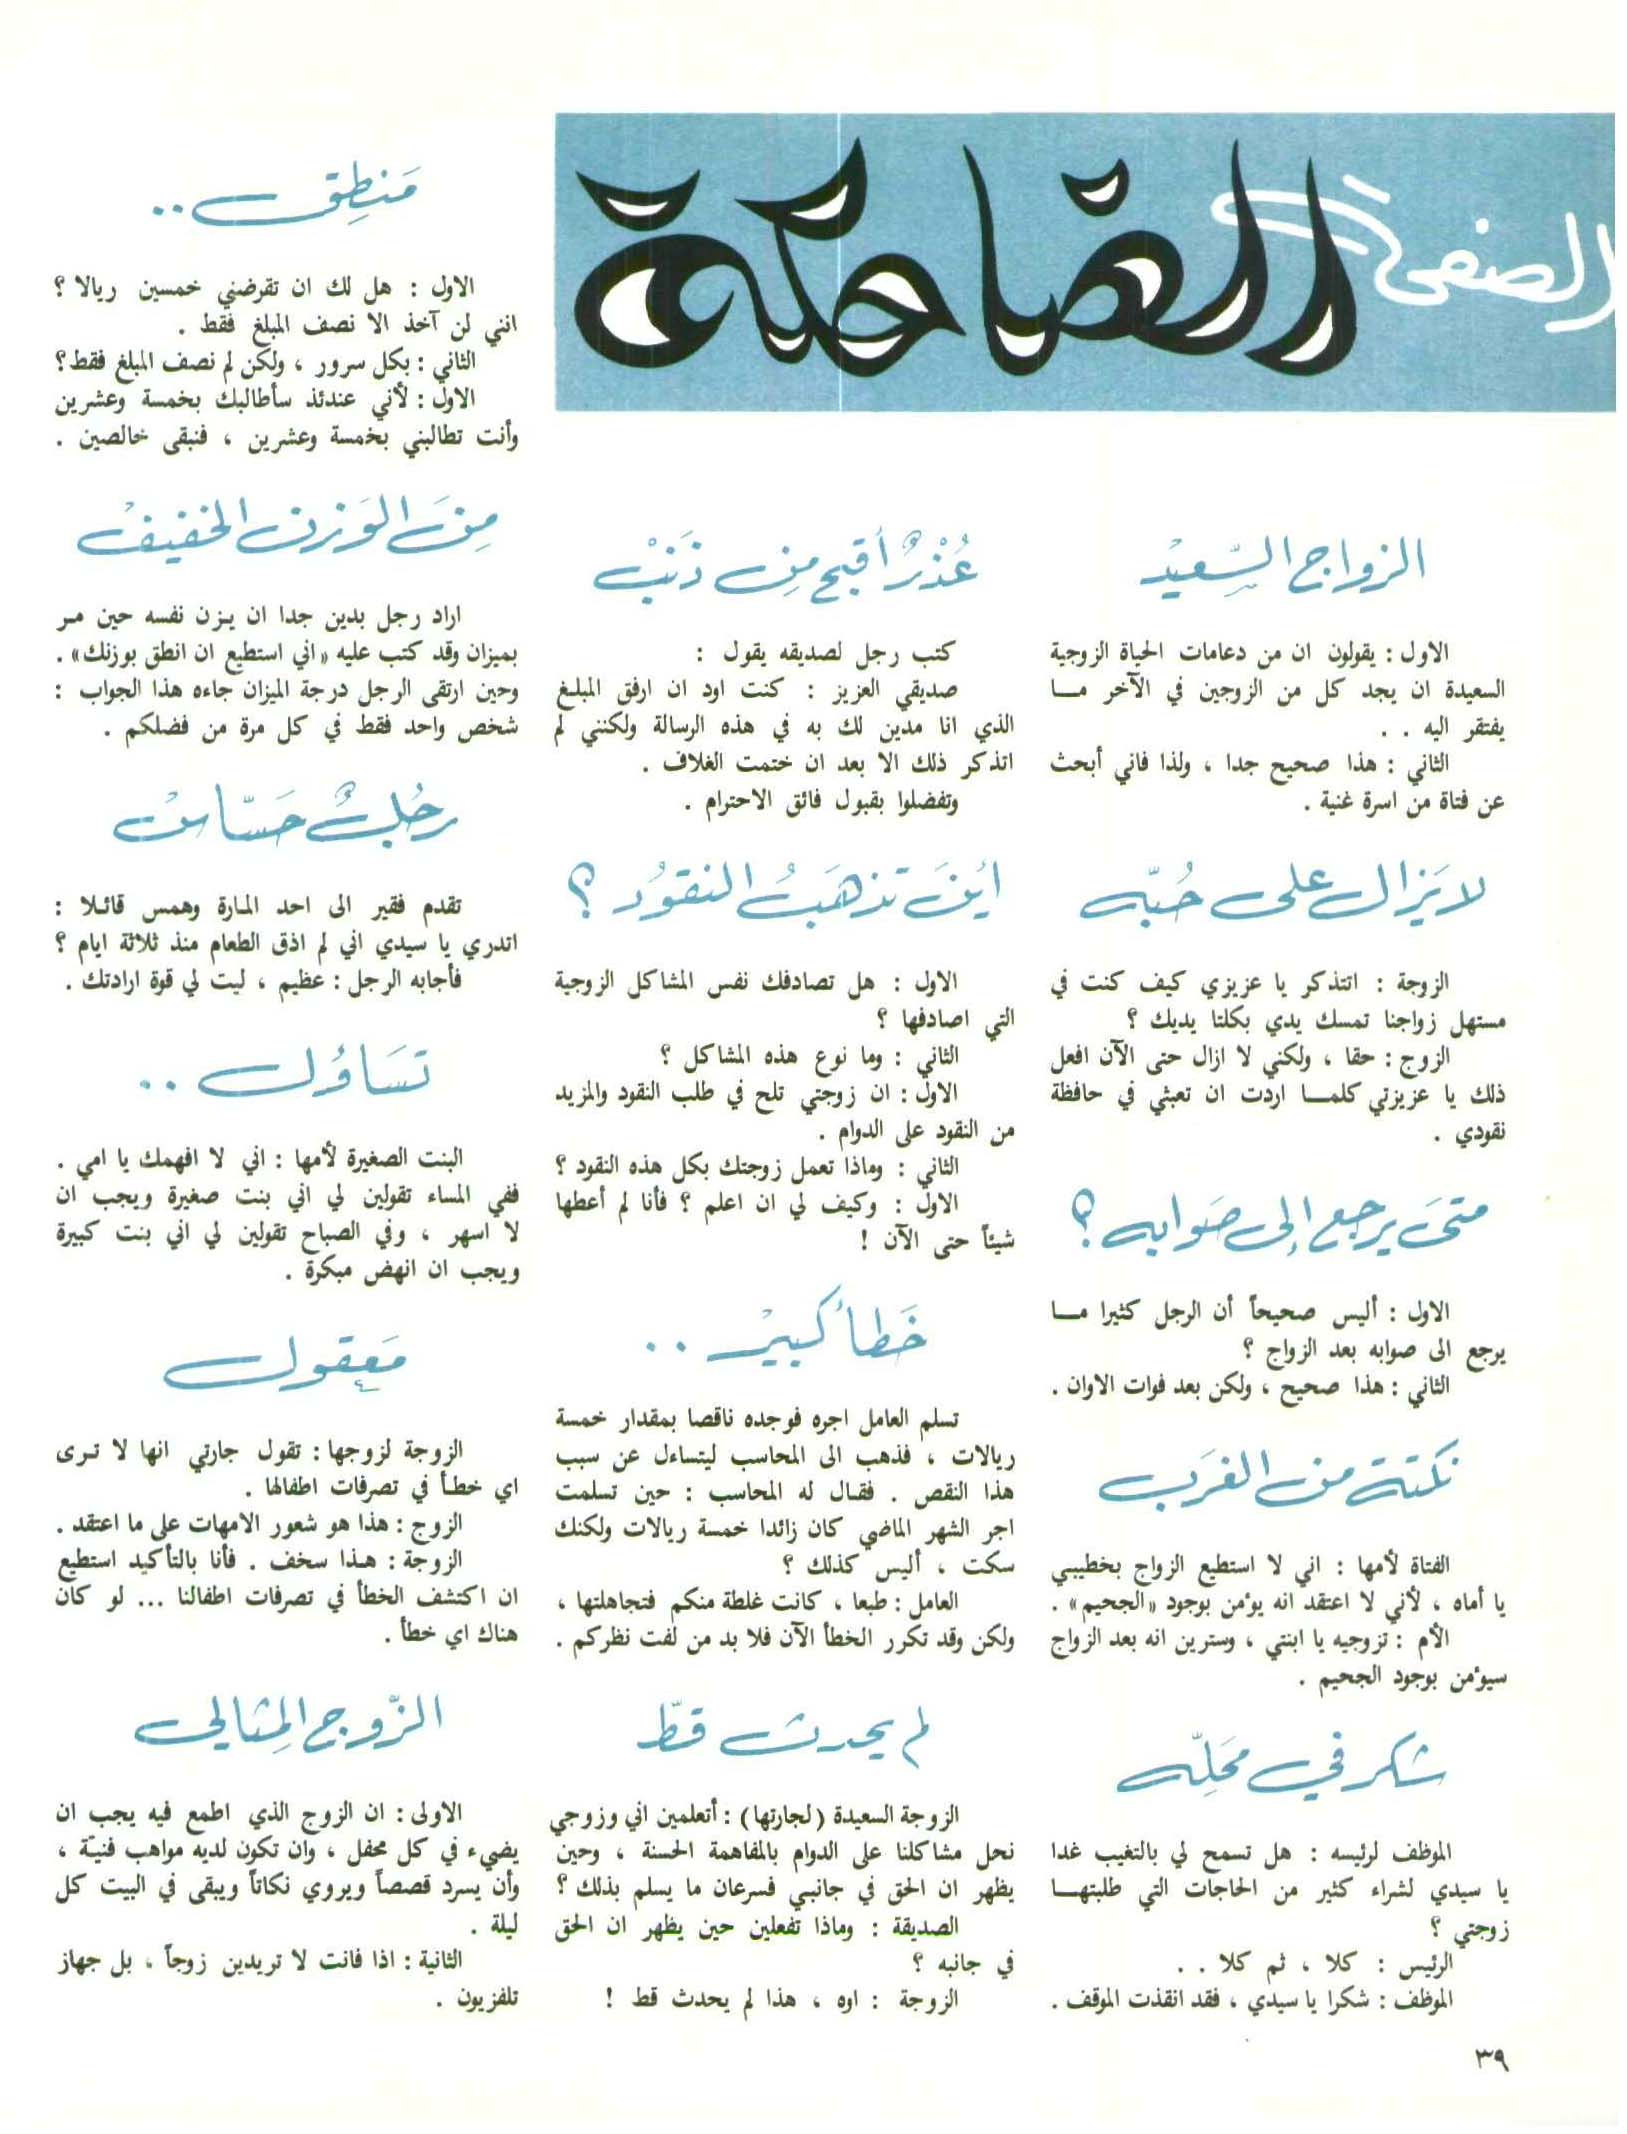 الصفحة الضاحكة
الزواج السّعيد
الاول : يقولون ان من دعامات الحياة الزوجية
السعيدة ان يجد كل من الزوجين في الآخر مـــا
يفتقر اليه . .
الثاني : هذا صحيح جدا ، ولذا فاني أبحث
عن فتاة من اسرة غنية .
لا يَزال على حُبّه
الزوجة : اتتذكر يا عزيزي كيف كنت في
مستهل زواجنا تمسك يدي بكلتا يديك ؟
الزوج : حقا ، ولكني لا ازال حتى الآن افعل
ذلك يا عزيزتي كلمـــا اردت ان تعبثي في حافظة
نقودي .
متىَ يرجع إلى صَوابه ؟
الاول : أليس صحيحاً أن الرجل كثيرا مـــا
يرجع الى صوابه بعد الزواج ؟
الثاني : هذا صحيح ، ولكن بعد فوات الاوان .
نكتة من الغرَب
الفتاة لأمها : اني لا استطيع الزواج بخطيبي
يا أماه ، لأني لا اعتقد انه يؤمن بوجود «الجحيم» .
الأم : تزوجيه يا ابنتي ، وسترين انه بعد الزواج
سيؤمن بوجود الجحيم .
شكر في محَلِّه
الموظف لرئيسه : هل تسمح لي بالتغيب غدا
يا سيدي لشراء كثير من الحاجات التي طلبتهـــا
زوجتي ؟
الرئيس : كلا ، ثم كلا . .
الموظف : شكرا يا سيدي ، فقد انقذت الموقف .
عُذْرٌ أقبح مِن ذَنبْ
كتب رجل لصديقه يقول :
صديقي العزيز : كنت اود ان ارفق المبلغ
الذي انا مدين لك به في هذه الرسالة ولكنني لم
اتذكر ذلك الا بعد ان ختمت الغلاف .
وتفضلوا بقبول فائق الاحترام .
ايْنَ تذهَبُ النقوُد ؟
الاول : هل تصادفك نفس المشاكل الزوجية
التي اصادفها ؟
الثاني : وما نوع هذه المشاكل ؟
الاول : ان زوجتي تلح في طلب النقود والمزيد
من النقود على الدوام .
الثاني : وماذا تعمل زوجتك بكل هذه النقود ؟
الاول : وكيف لي ان اعلم ؟ فأنا لم أعطها
شيئاً حتى الآن !
خَطأ كبيْر . .
تسلم العامل اجره فوجده ناقصا بمقدار خمسة
ريالات ، فذهب الى المحاسب ليتساءل عن سبب
هذا النقص . فقال له المحاسب : حين تسلمت
اجر الشهر الماضي كان زائدا خمسة ريالات ولكنك
سكت ، أليس كذلك ؟
العامل : طبعا ، كانت غلطة منكم فتجاهلتها ،
ولكن وقد تكرر الخطأ الآن فلا بد من لفت نظركم .
لم يحدث قطّ
الزوجة السعيدة (لجارتها) : أتعلمين اني وزوجي
نحل مشاكلنا على الدوام بالمفاهمة الحسنة ، وحين
يظهر ان الحق في جانبي فسرعان ما يسلم بذلك ؟
الصديقة : وماذا تفعلين حين يظهر ان الحق
في جانبه ؟
الزوجة : اوه ، هذا لم يحدث قط !
مَنطِق . .
الاول : هل لك ان تقرضني خمسين ريالا ؟
انني لن آخذ الا نصف المبلغ فقط .
الثاني : بكل سرور ، ولكن لم نصف المبلغ فقط؟
الاول : لأني عندئذ سأطالبك بخمسة وعشرين
وأنت تطالبني بخمسة وعشرين ، فنبقى خالصين .
مِنَ الوَزن الخفيفْ
اراد رجل بدين جدا ان يـزن نفسه حين مـر
بميزان وقد كتب عليه «اني استطيع ان انطق بوزنك» .
وحين ارتقى الرجل درجة الميزان جاءه هذا الجواب :
شخص واحد فقط في كل مرة من فضلكم .
رجُلٌ حَسّاسْ
تقدم فقير الى احد المـارة وهمس قائـلا :
اتدري يا سيدي اني لم اذق الطعام منذ ثلاثة ايام ؟
فأجابه الرجل : عظيم ، ليت لي قوة ارادتك .
تسَاؤل . .
البنت الصغيرة لأمها : اني لا افهمك يا امي .
ففي المساء تقولين لي اني بنت صغيرة ويجب ان
لا اسهر ، وفي الصباح تقولين لي اني بنت كبيرة
ويجب ان انهض مبكرة .
مَعقول
الزوجة لزوجها : تقول جارتي انها لا تـرى
اي خطأ في تصرفات اطفالها .
الزوج : هذا هو شعور الامهات على ما اعتقد .
الزوجة : هـذا سخف . فأنا بالتأكيد استطيع
ان اكتشف الخطأ في تصرفات اطفالنا ... لو كان
هناك اي خطأ .
الزّوج المِثالي
الاولى : ان الزوج الذي اطمع فيه يجب ان
يضيء في كل محفل ، وان تكون لديه مواهب فنيّـة ،
وأن يسرد قصصاً ويروي نكاتاً ويبقى في البيت كل
ليلة .
الثانية : اذا فانت لا تريدين زوجاً ، بل جهاز
تلفزيون .
٣٩